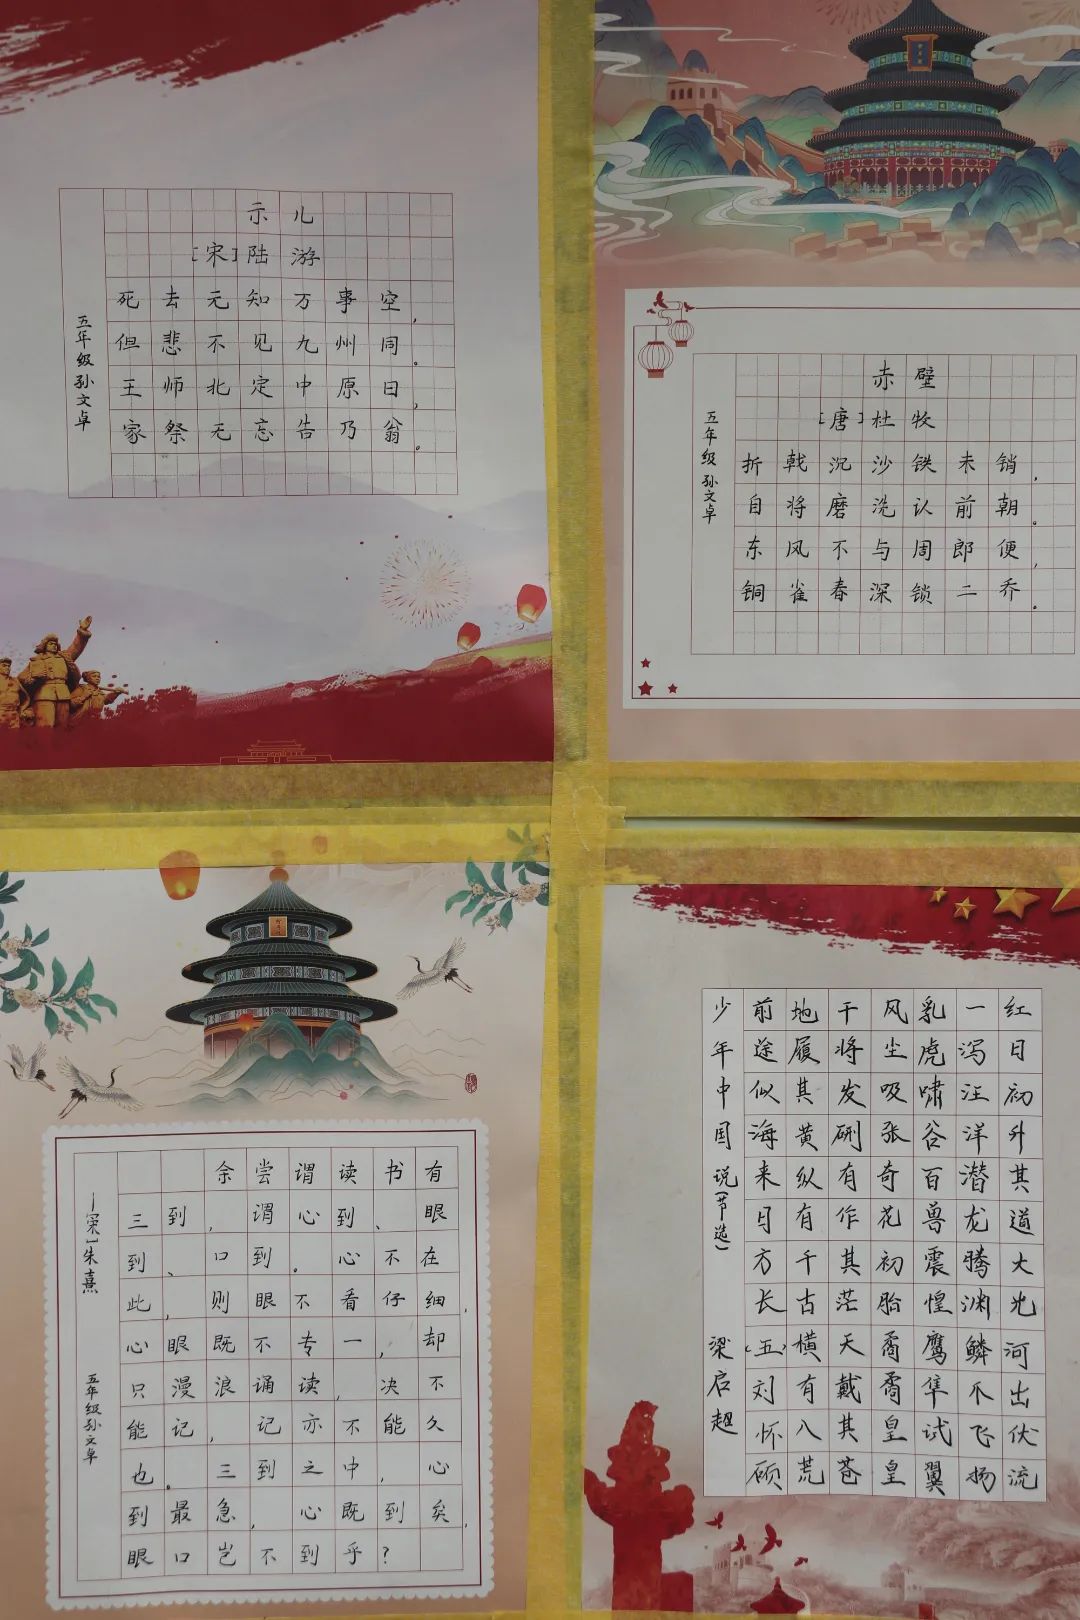 示儿
[宋]陆游
死去元知万事空,
但悲不见九州同。
王师北定中原日,
家祭无忘告乃翁。
五年级 孙文卓
赤壁
[唐]杜牧
折戟沉沙铁未销,
自将磨洗认前朝。
东风不与周郎便,
铜雀春深锁二乔。
五年级 孙文卓
余尝谓读书有
三到,谓心到、眼
到、口到。心不在
此,则眼不看仔细,
心眼既不专一,却
只漫浪诵读,决不
能记,记亦不能久
也。三到之中,心
到最急,心既到矣,
眼口岂不到乎?
—[宋]朱熹
五年级孙文卓
红日初升其道大光河出伏流
一泻汪洋潜龙腾渊鳞爪飞扬
乳虎啸谷百兽震惶鹰隼试翼
风尘吸张奇花初胎矞矞皇皇
干将发硎有作其芒天戴其苍
地履其黄纵有千古横有八荒
前途似海来日方长(五)刘怀硕
少年中国说(节选) 梁启超